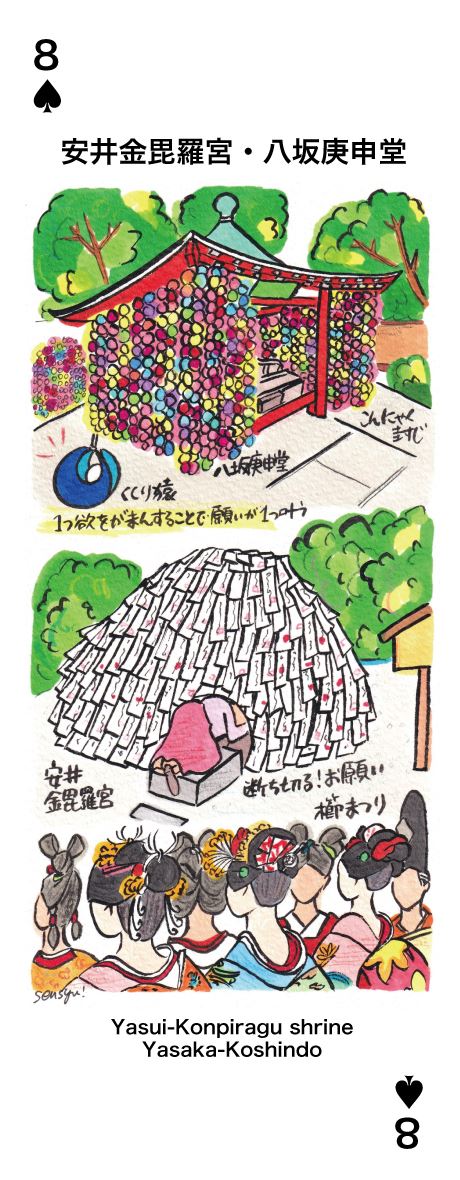 8
♠
安井金毘羅宮・八坂庚申堂
こんにゃく
封じ
八坂庚申堂
くくり猿
1つ欲をがまんすることで願いが1つ叶う
安井
金毘羅宮
断ち切る!お願い
櫛まつり
sensyu!
Yasui-Konpiragu shrine
Yasaka-Koshindo
♠
8